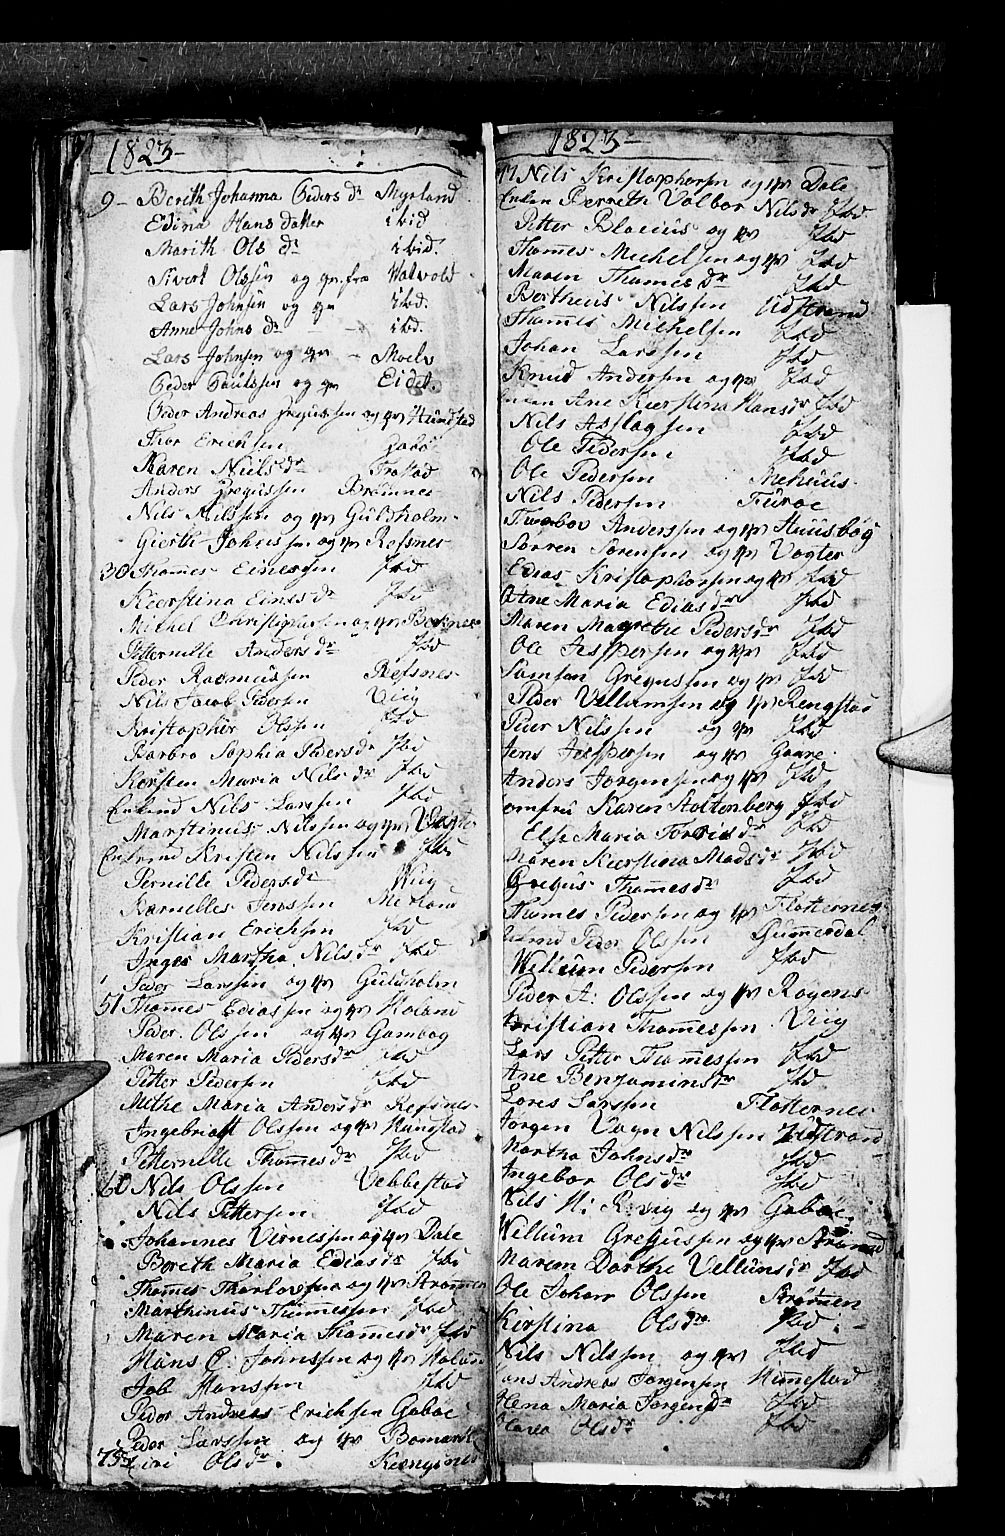 1823-
9- Berith Johanna Peders dr Myrland
Edina Hans datter ibid
Marith Ols dr ibid.
Sivert Olssen og qv. fra Walvold
Lars Johnsen og qv ibd.
Anne Johns dr - ibd.
Lars Johnsen og qv - Moelv
Peder Paulssen og qv Eidet.
Peder Andreas Gregussen og qv Hundstad
Thor Erichsen Gaboe
Karen Niels dr Trastad
Anders Gregussen Bremnes
Nils Nilssen og qv Guldholm-
Gierth Johnssen og qv Refsnes
30 Thomes Einersen Ibd
Kierstina Einers dr Ibid
Michel Christophersen og qv Boksnes
Petternille Anders dr Ibd
Peder Rasmussen Refsnes
Nils Jacob Pedersen Viig
Kristopher Olssen Ibd
Barbro Sophia Peders dr Ibd
Kersten Maria Nils dr Ibd
Enkemd Nils Larssen Ibd
Marstinus Nilssen og qv Vagte
Enkemd Kristen Nilssen Ibd
Pernille Peders dr Wiig
Karnelles Jenssen Merland
Kristian Erichsen Ibd
Inger Martha Nils dr Ibd
Peder Larssen og qv Guldholm
51 Thommes Ediassen og qv Holand
Peder Olssen og qv Gambog
Maren Maria Peders dr Ibd
Petter Pedersen Ibd
Methe Maria Anders dr Refsnes
Ingebrigt Olssen og qv Hungstad
Petternelle Thommes dr Ibd
60 Nils Olssen Vebbestad
Nils Pettersen Ibd
Johannes Vernessen og qv Dale
Bereth Maria Edias dr Ibd
Thommes Thorlovssen og qv Strommen
Marthinus Thommessen Ibd
Maren Maria Thommes dr Ibd
Hans C: Johnssen og qv Holand
Job Hanssen Ibd
Peder Andreas Erichsen Gaboe
Peder Larssen og qv Bomark
75 Siri Ols dr. Kiengsnes
1823-
77 Nils Kristophersen og qv Dale
Enken Berreth Volbor Nils dr Ibd
Petter Blacius og qv Ibd
Thommes Michelsen og qv Ibd
Maren Thommes dr Ibd
Bertheus Nilssen Udstrand
Thommes Michelsen Ibd
Johan Larssen Ibd
Knud Andersen og qv Ibd
Enken Ane Kierstina Hans dr Ibd
Nils Asslagsen Ibd
Ole Pedersen Ibd
Ole Pedersen Mehuus
Nils Pedersen Furoe
Andersen og qv Huusbøg
Sørren Sørensen og qv Vogter
Edias Kristophersen og qv Ibd
Ane Maria Edias dr Ibd
Maren Magrethe Peders dr Ibd
Ole Jespersen og qv Ibd
Samson Gregussen og qv Ibd
Peder Vellumsen og qv Rengstad
Peder Nilssen og qv Ibd
Jens Jespersen og qv Gaare.
Anders Jorgensen og qv Ibd
omfru Karen Stoltenberg Ibd
Else Maria Torris dr Ibd
Maren Kierstina Mads dr Ibd
Gregus Thommes dr Ibd
Thomes Pedersen og qv Flotternes
Peder Olssen Gummerdal
Wellum Pedersen Ibd
Peder A: Olssen og qv Røgens
Kristian Thommessen Viig
Lars Petter Thommessen Ibd
Ane Benjamins dr Ibd
Lores Larssen Flotternes
Jorgen Vagn Nilssen Udstrand
Martha Johns dr Ibd
Ingebor Ols dr Ibd
Nils Hi og qv Gaboe
Wellum Gregussen og qv Strand
Maren Dorthe Vellums dr Ibd
Ole Johan Olssen Strømen
Kirstina Ols dr Ibd
Nils Nilssen og qv Ibd
ans Andreas Jorgensen Himmestad
Elena Maria Jorgens dr Ibd
Maren Ols dr Ibd